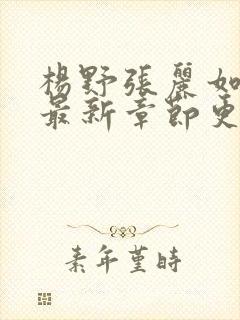 楊野張麗如
最新章節更
素年堇時